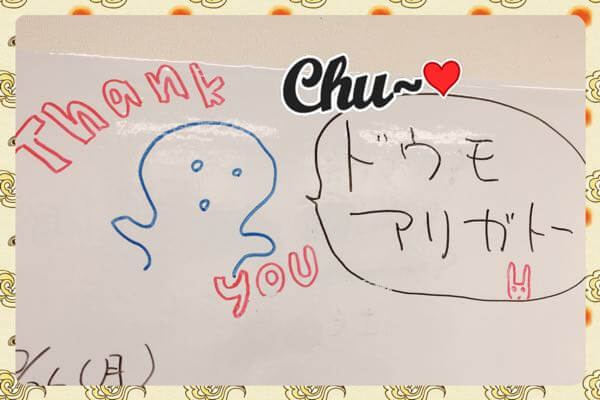 Thank
Chu~
ドウモ
アリガトー
you
(月)